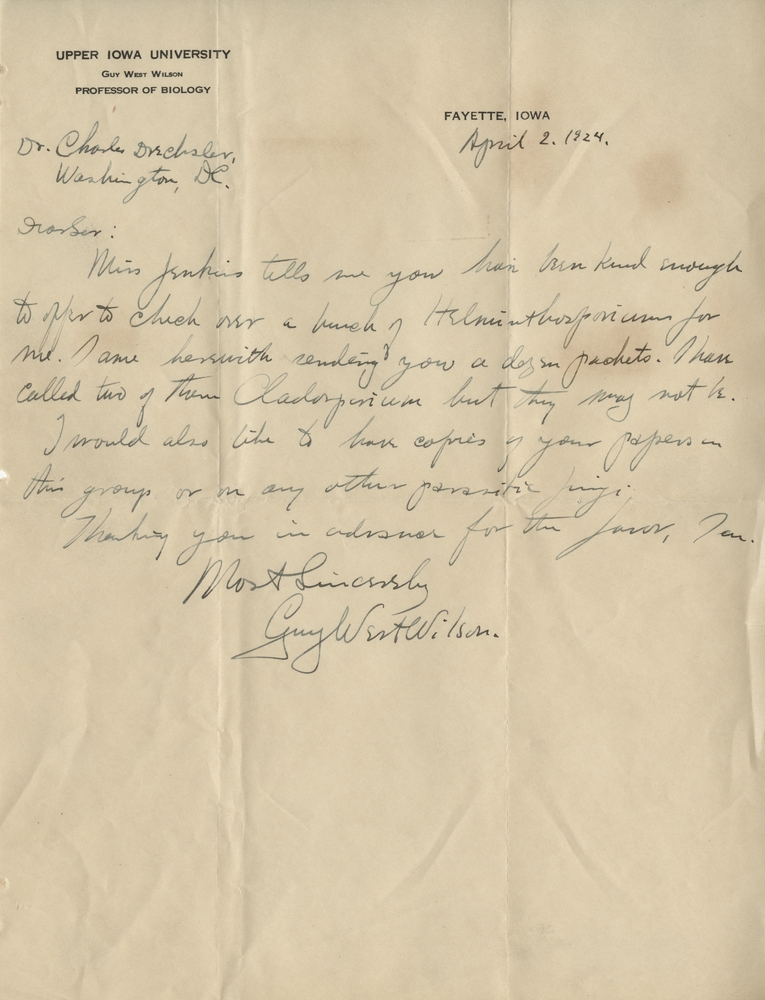 UPPER IOWA UNIVERSITY
GUY WEST WILSON
PROFESSOR OF BIOLOGY
FAYETTE, IOWA
April 2. 1924.
Dr. Charles Drechsler,
Washington, DC.
Dear Sir:
Miss Jenkins tells me you have been kind enough
to offer to check over a bunch of Helminthosporiums for
me. I am herewith sending you a dozen packets. I have
called two of them Cladosporium but they may not be.
I would also like to have copies of your papers on
this group or on any other parasitic fungi.
Thanking you in advance for the favor, I am.
Most Sincerely
Guy West Wilson.